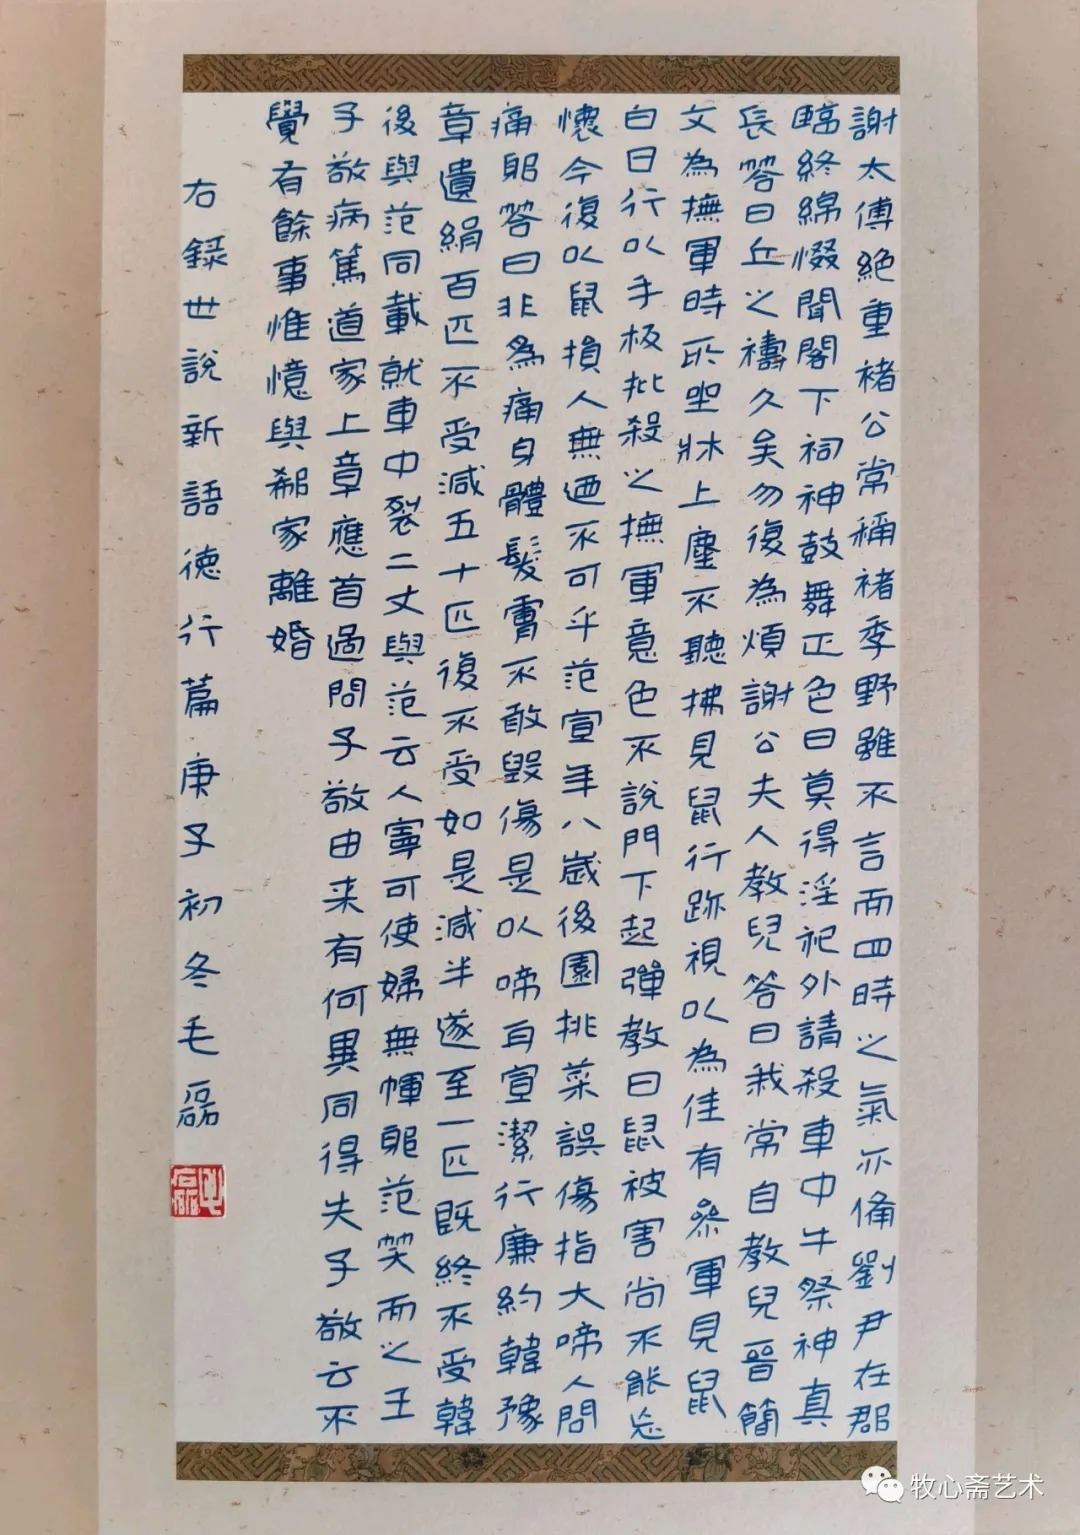 謝太傅絕重褚公常稱褚季野雖不言而四時之氣亦備劉尹在郡
臨終綿惙聞閣下祠神鼓舞正色曰莫得淫祀外請殺車中牛祭神真
長答曰丘之禱久矣勿復為煩謝公夫人教兒答曰我常自教兒晉簡
文為撫軍時所坐牀上塵不聽拂見鼠行跡視以為佳有參軍見鼠
白日行以手板批殺之撫軍意色不說門下起彈教曰鼠被害尚不能忘
懷今復以鼠損人無迺不可乎范宣年八歲後園挑菜誤傷指大啼人問
痛邪答曰非為痛身體髮膚不敢毀傷是以啼耳宣潔行廉約韓豫
章遺絹百匹不受減五十匹復不受如是減半遂至一匹既終不受韓
後與范同載就車中裂二丈與范云人寧可使婦無幝邪范笑而之王
子敬病篤道家上章應首過問子敬由来有何異同得失子敬云不
覺有餘事惟憶與郗家離婚
右錄世說新語德行篇庚子初冬毛磊
毛磊
牧心斋艺术